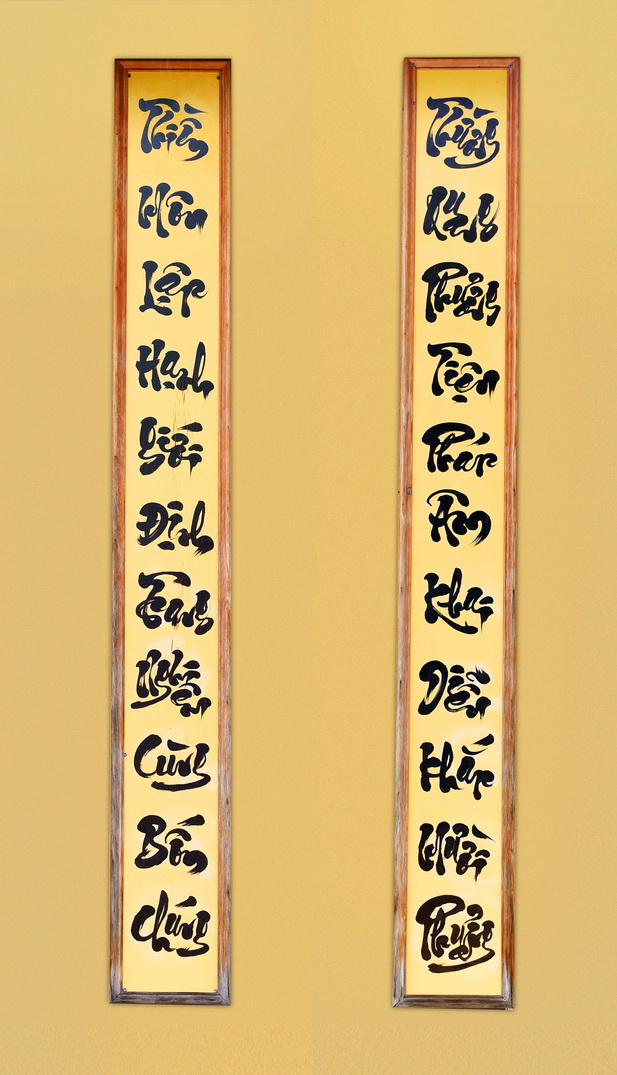 Thiền
Môn
Lập
Hạnh
Giới
Định
Trang
Nghiêm
Cùng
Bốn
Chúng
Thường
Phương
Tiện
Pháp
Âm
Khai
Diễn
Khắp
Mười
Phương